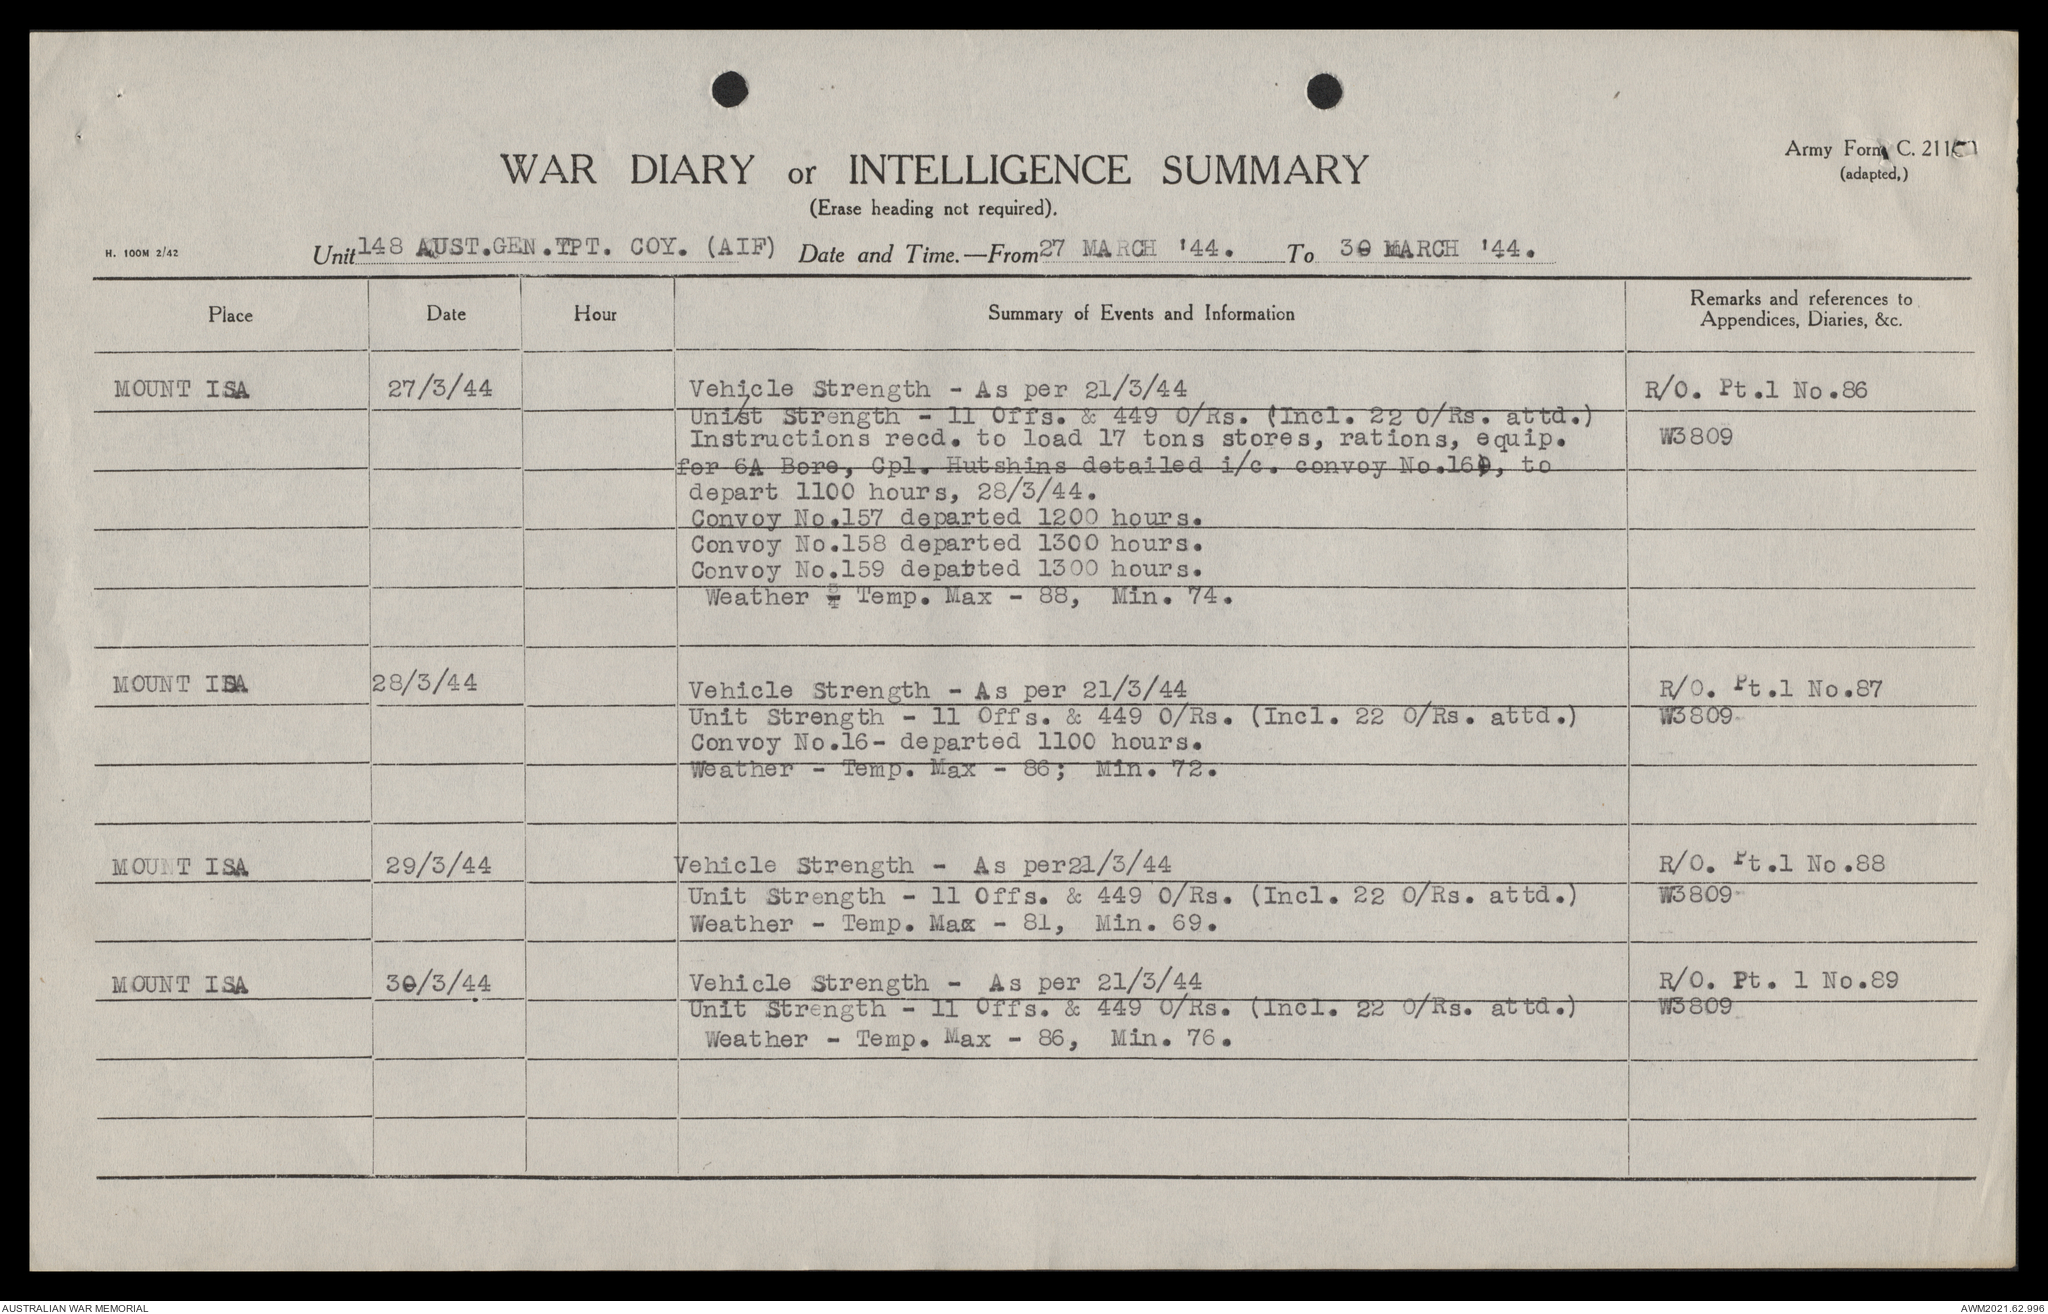 Army Form C. 2118
(adapted,)
WAR DIARY or INTELLIGENCE SUMMARY
(Erase heading not required).
H. 100M 2/42
Unit 148 AUST.GEN.TPT. COY. (AIF) Date and Time.—From 27 MARCH '44. To 30 MARCH '44.
Place Date Hour Summary of Events and Information Remarks and references to Appendices, Diaries, &c.
MOUNT ISA 27/3/44 Vehicle Strength - As per 21/3/44 R/O. Pt.1 No.86
Unit Strength - 11 Offs. & 449 O/Rs. (Incl. 22 O/Rs. attd.)
Instructions recd. to load 17 tons stores, rations, equip. W3809
for 6A Bore, Cpl. Hutshins detailed i/c. convoy No.160, to
depart 1100 hours, 28/3/44.
Convoy No.157 departed 1200 hours.
Convoy No.158 departed 1300 hours.
Convoy No.159 departed 1300 hours.
Weather - Temp. Max - 88, Min. 74.
MOUNT ISA 28/3/44 Vehicle Strength - As per 21/3/44 R/O. Pt.1 No.87
Unit Strength - 11 Offs. & 449 O/Rs. (Incl. 22 O/Rs. attd.) W3809
Convoy No.16- departed 1100 hours.
Weather - Temp. Max - 86; Min. 72.
MOUNT ISA 29/3/44 Vehicle Strength - As per21/3/44 R/O. Pt.1 No.88
Unit Strength - 11 Offs. & 449 O/Rs. (Incl. 22 O/Rs. attd.) W3809
Weather - Temp. Max - 81, Min. 69.
MOUNT ISA 30/3/44 Vehicle Strength - As per 21/3/44 R/O. Pt. 1 No.89
Unit Strength - 11 Offs. & 449 O/Rs. (Incl. 22 O/Rs. attd.) W3809
Weather - Temp. Max - 86, Min. 76.
AUSTRALIAN WAR MEMORIAL AWM2021.62.996